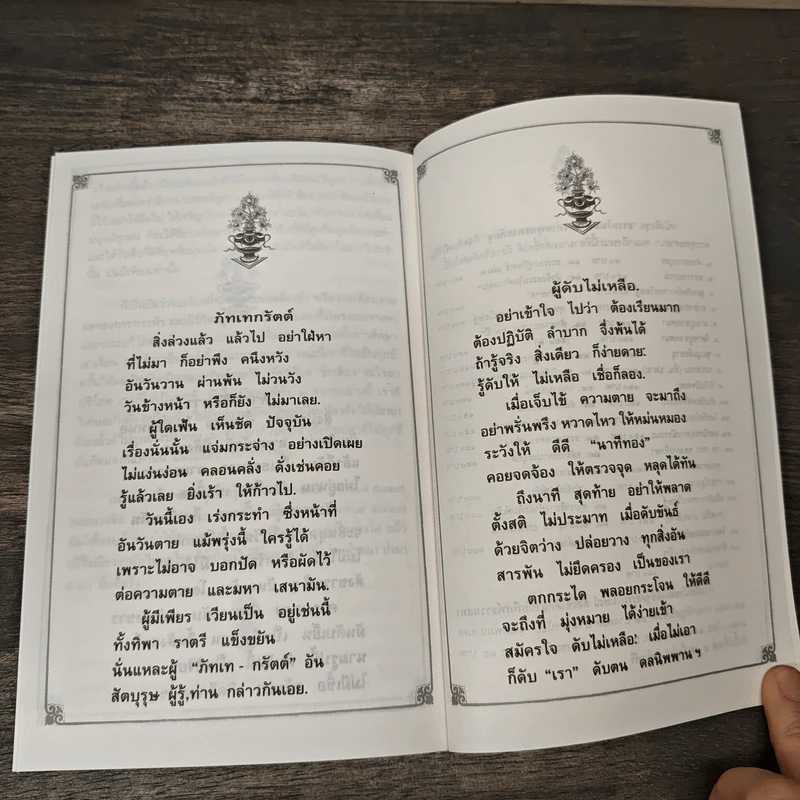 ภัทเทกรัตต์
สิ่งล่วงแล้ว แล้วไป อย่าใฝ่หา
ที่ไม่มา ก็อย่าพึง คนึงหวัง
อันวันวาน ผ่านพ้น ไม่วนวัง
วันข้างหน้า หรือก็ยัง ไม่มาเลย.
ผู้ใดเห็น เห็นชัด ปัจจุบัน
เรื่องนั่นนั้น แจ่มกระจ่าง อย่างเปิดเผย
ไม่แง่นง่อน คลอนคลั่ง ดั่งเช่นเคย
รู้แล้วเลย ยิ่งเร้า ให้ก้าวไป.
วันนี้เอง เร่งกระทำ ซึ่งหน้าที่
อันวันตาย แม้พรุ่งนี้ ใครรู้ได้
เพราะไม่อาจ บอกปัด หรือผัดไว้
ต่อความตาย และมหา เสนามัน.
ผู้มีเพียร เวียนเป็น อยู่เช่นนี้
ทั้งทิพา ราตรี แข็งขยัน
นั่นแหละผู้ “ภัทเท - กรัตต์” อัน
สัตบุรุษ ผู้รู้,ท่าน กล่าวกันเอย.
ผู้ดับไม่เหลือ.
อย่าเข้าใจ ไปว่า ต้องเรียนมาก
ต้องปฏิบัติ ลำบาก จึ่งพ้นได้
ถ้ารู้จริง สิ่งเดียว ก็ง่ายดาย:
รู้ดับให้ ไม่เหลือ เชื่อก็ลอง.
เมื่อเจ็บไข้ ความตาย จะมาถึง
อย่าพรั่นพรึง หวาดไหว ให้หม่นหมอง
ระวังให้ ดีดี “นาทีทอง”
คอยจดจ้อง ให้ตรวจจุด หลุดได้ทัน
ถึงนาที สุดท้าย อย่าให้พลาด
ตั้งสติ ไม่ประมาท เมื่อดับขันธ์
ด้วยจิตว่าง ปล่อยวาง ทุกสิ่งอัน
สารพัน ไม่ยึดครอง เป็นของเรา
ตกกระได พลอยกระโจน ให้ดีดี
จะถึงที่ มุ่งหมาย ได้ง่ายเข้า
สมัครใจ ดับไม่เหลือ! เมื่อไม่เอา
ก็ดับ “เรา” ดับตน ดลนิพพาน ฯ